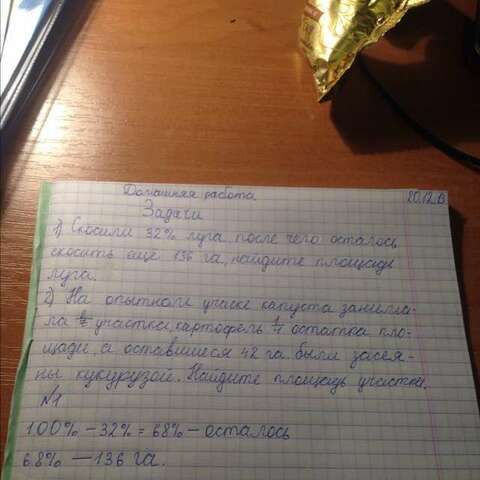 Домашняя работа 20.12.
Задачи
1) Скосили 32% луга после чего осталось
скосить ещё 136 га, найдите площадь
луга.
2) На опытном участке капуста занима-
ла участка, картофель остатка пло-
щади, а оставшиеся 42 га были засея-
ны кукурузой. Найдите площадь участка.
№1
100% – 32% = 68% – осталось
68% — 136 га.